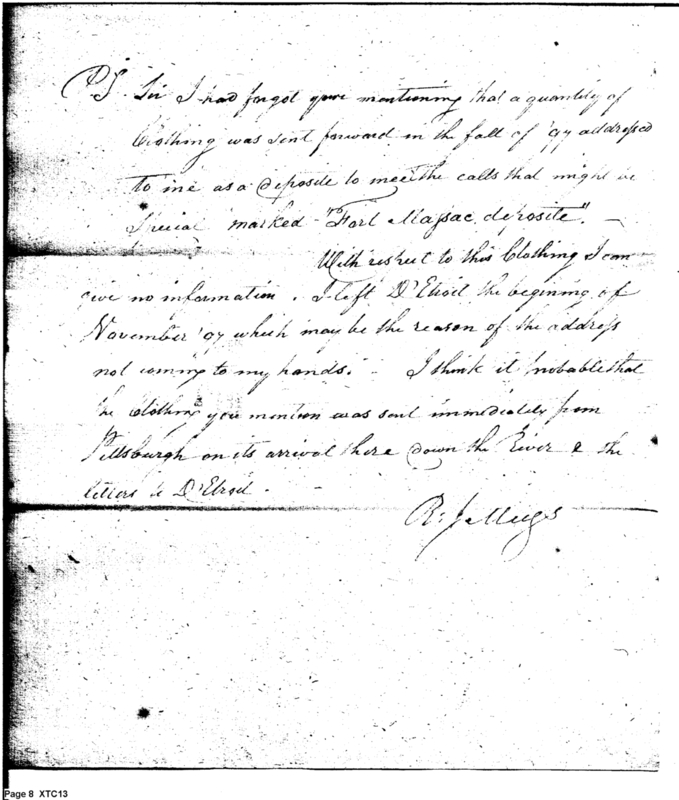 PS. Sir I had forgot your mentioning that a quantity of
Clothing was sent forward in the fall of '97 addressed
to me as a deposite to meet the calls that might be
marked "Fort Massac deposite". —
With respect to this Clothing I can
give no information. I left D'Etroit the begining of
November '97 which may be the reason of the address
not coming to my hands. - I think it probable that
the Clothing you mention was sent immediately from
Pittsburgh on its arrival there down the River & the
letters to D'Etroit.
R: J Meigs
Page 8 XTC13